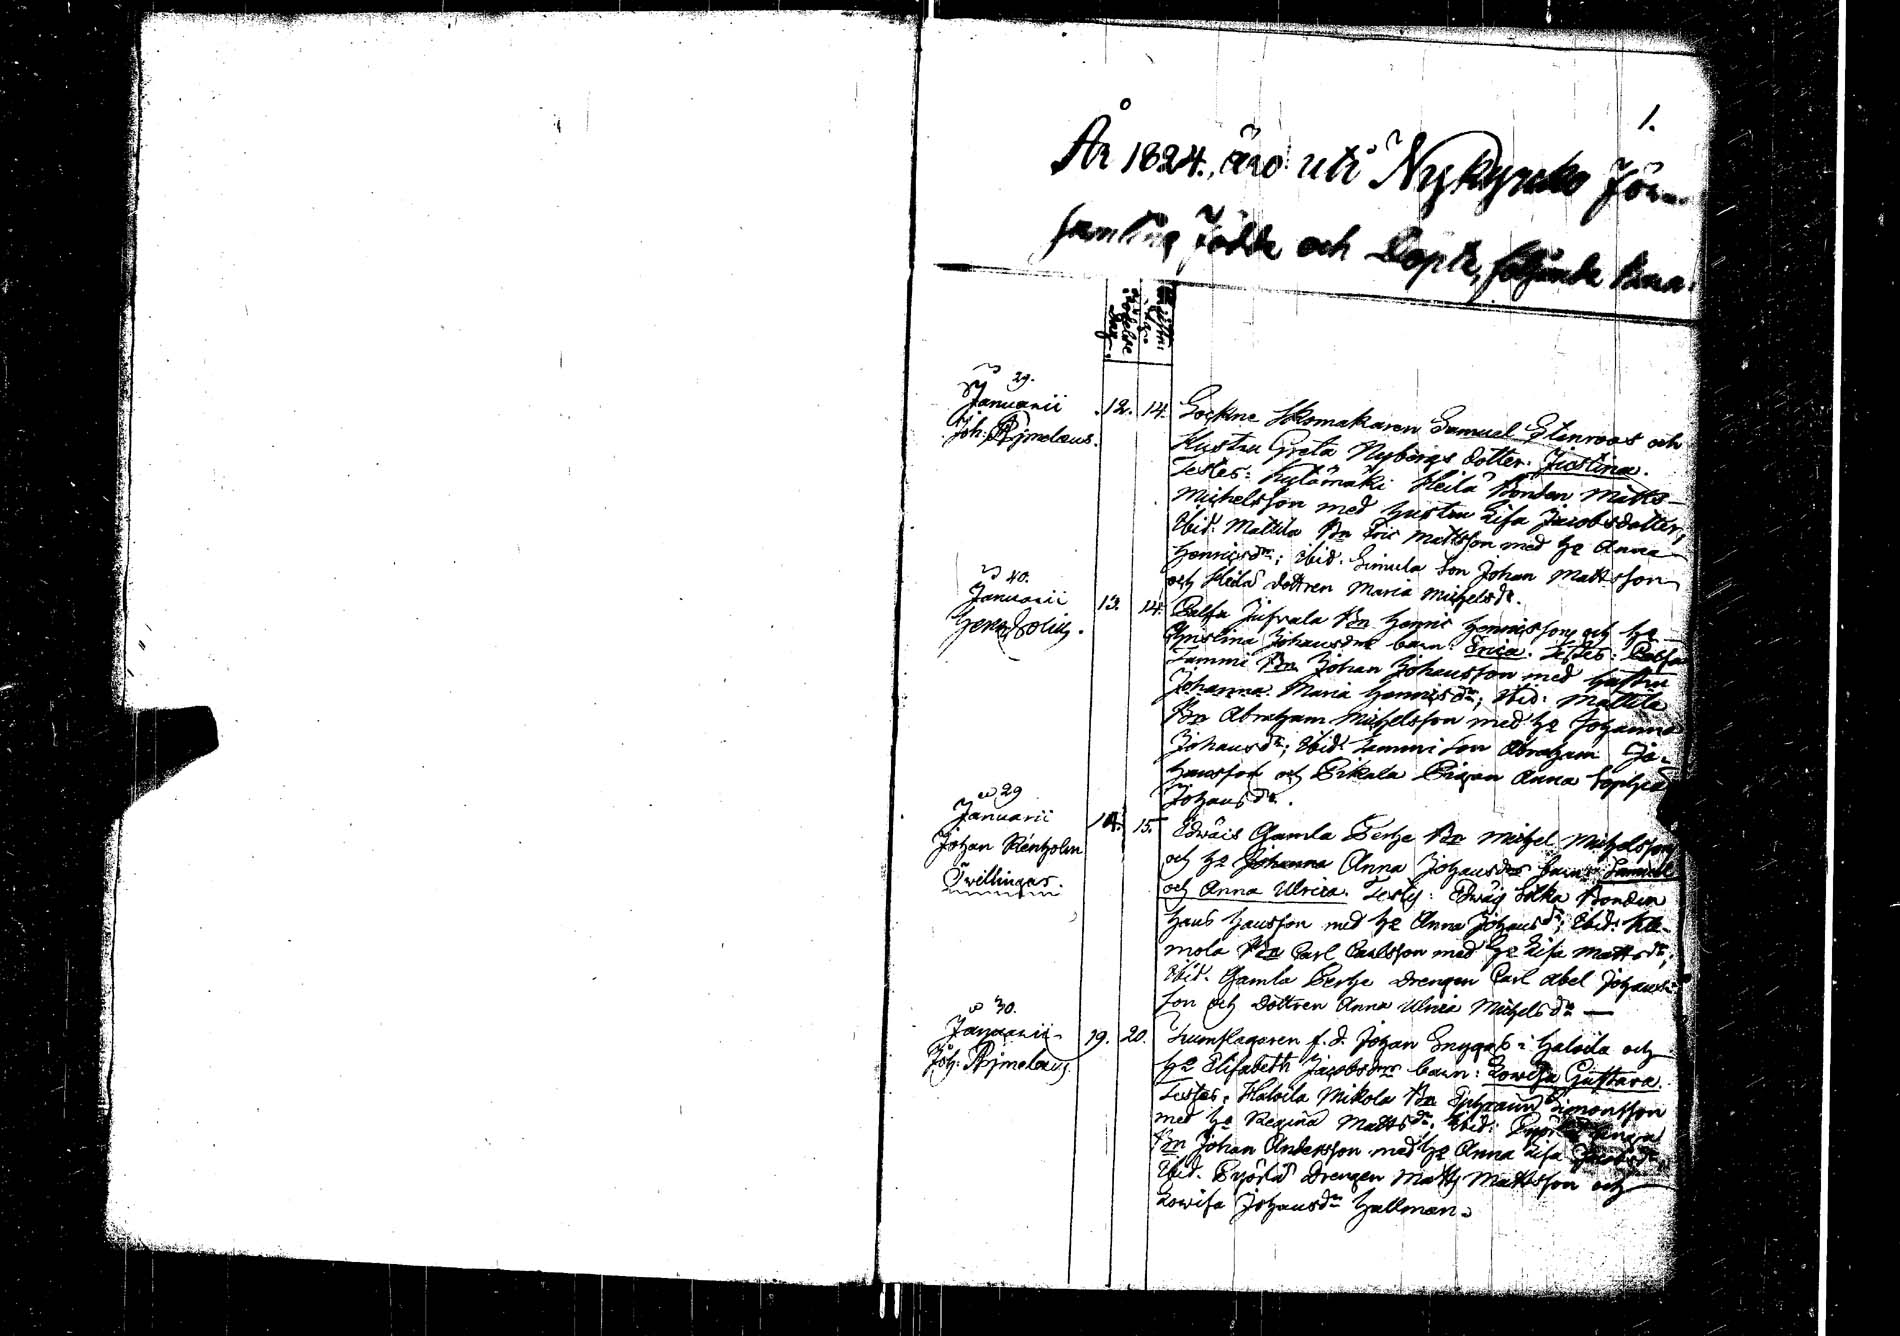 1.
År 1824. äro uti Nykyrko För-
samling Födde och Döpte, följande Barn.
29.
Januarii
Joh: Rymelaus.
12. 14. Sockne Skomakaren Samuel Stenroos och
Hustru Greta Nybergs dotter: Justina.
Testes: Kylämäki Heilä Bonden Matts
Michelsson med hustru Lisa Jacobsdotter,
Ibid: Mattila Bn Eric Mattsson med h. Anna
Henricsdr; ibid. Simula Son Johan Mattsson
och Heilä dottren Maria Michelsdr.
40.
Januarii
13. 14. Bn Henric Henricsson och h.
Christina Johansdrs barn: Erica. Testes:
Tammi Bn Johan Johansson med hustru
Johanna Maria Henricsdr; Ibid: Mattila
Bn Abraham Michelsson med h. Johanna
Johansdr; Ibid. Tammi Son Abraham Jo-
hansson och Pikala Pigan Anna Sophia
Johansdr.
29
Januarii
Johan Renholm
Tvillingar.
14. 15. Gamla Bn Michel Michelsson
och h. Johanna Anna Johansdrs barn: Samuel
och Anna Ulrica. Testes: Bonden
Hans Hansson med h. Anna Johansdr; Ibid:
mola Bn Carl Carlsson med h. Lisa Mattsdr;
Ibid. Gamla Drengen Carl Abel Johans-
son och Dottren Anna Ulrica Michelsdr —
30.
Januarii
Joh: Rymelaus
19. 20. Trumslagaren f. d. Johan i Haloila och
h. Elisabeth Jacobsdrs barn: Lowisa Gustava.
Testes: Haloila Mikola Bn Simonsson
med h. Regina Mattsdr; Ibid:
Bn Johan Andersson med h. Anna Lisa
Ibid. Drengen Matts Mattsson och
Lowisa Johansdr Hallman.